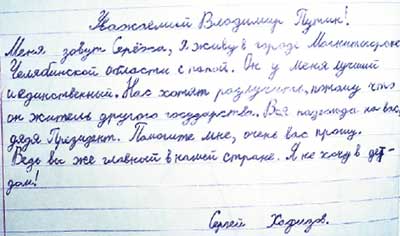 Уважаемый Владимир Путин!
Меня зовут Серёжа, я живу в городе Магнитогорске
Челябинской области с папой. Он у меня лучший
и единственный. Нас хотят разлучить, потому что
он житель другого государства. Вся надежда на вас,
дядя Президент. Помогите мне, очень вас прошу.
Ведь вы же главный в нашей стране. Я не хочу в дет-
дом!
Сергей Хафизов.